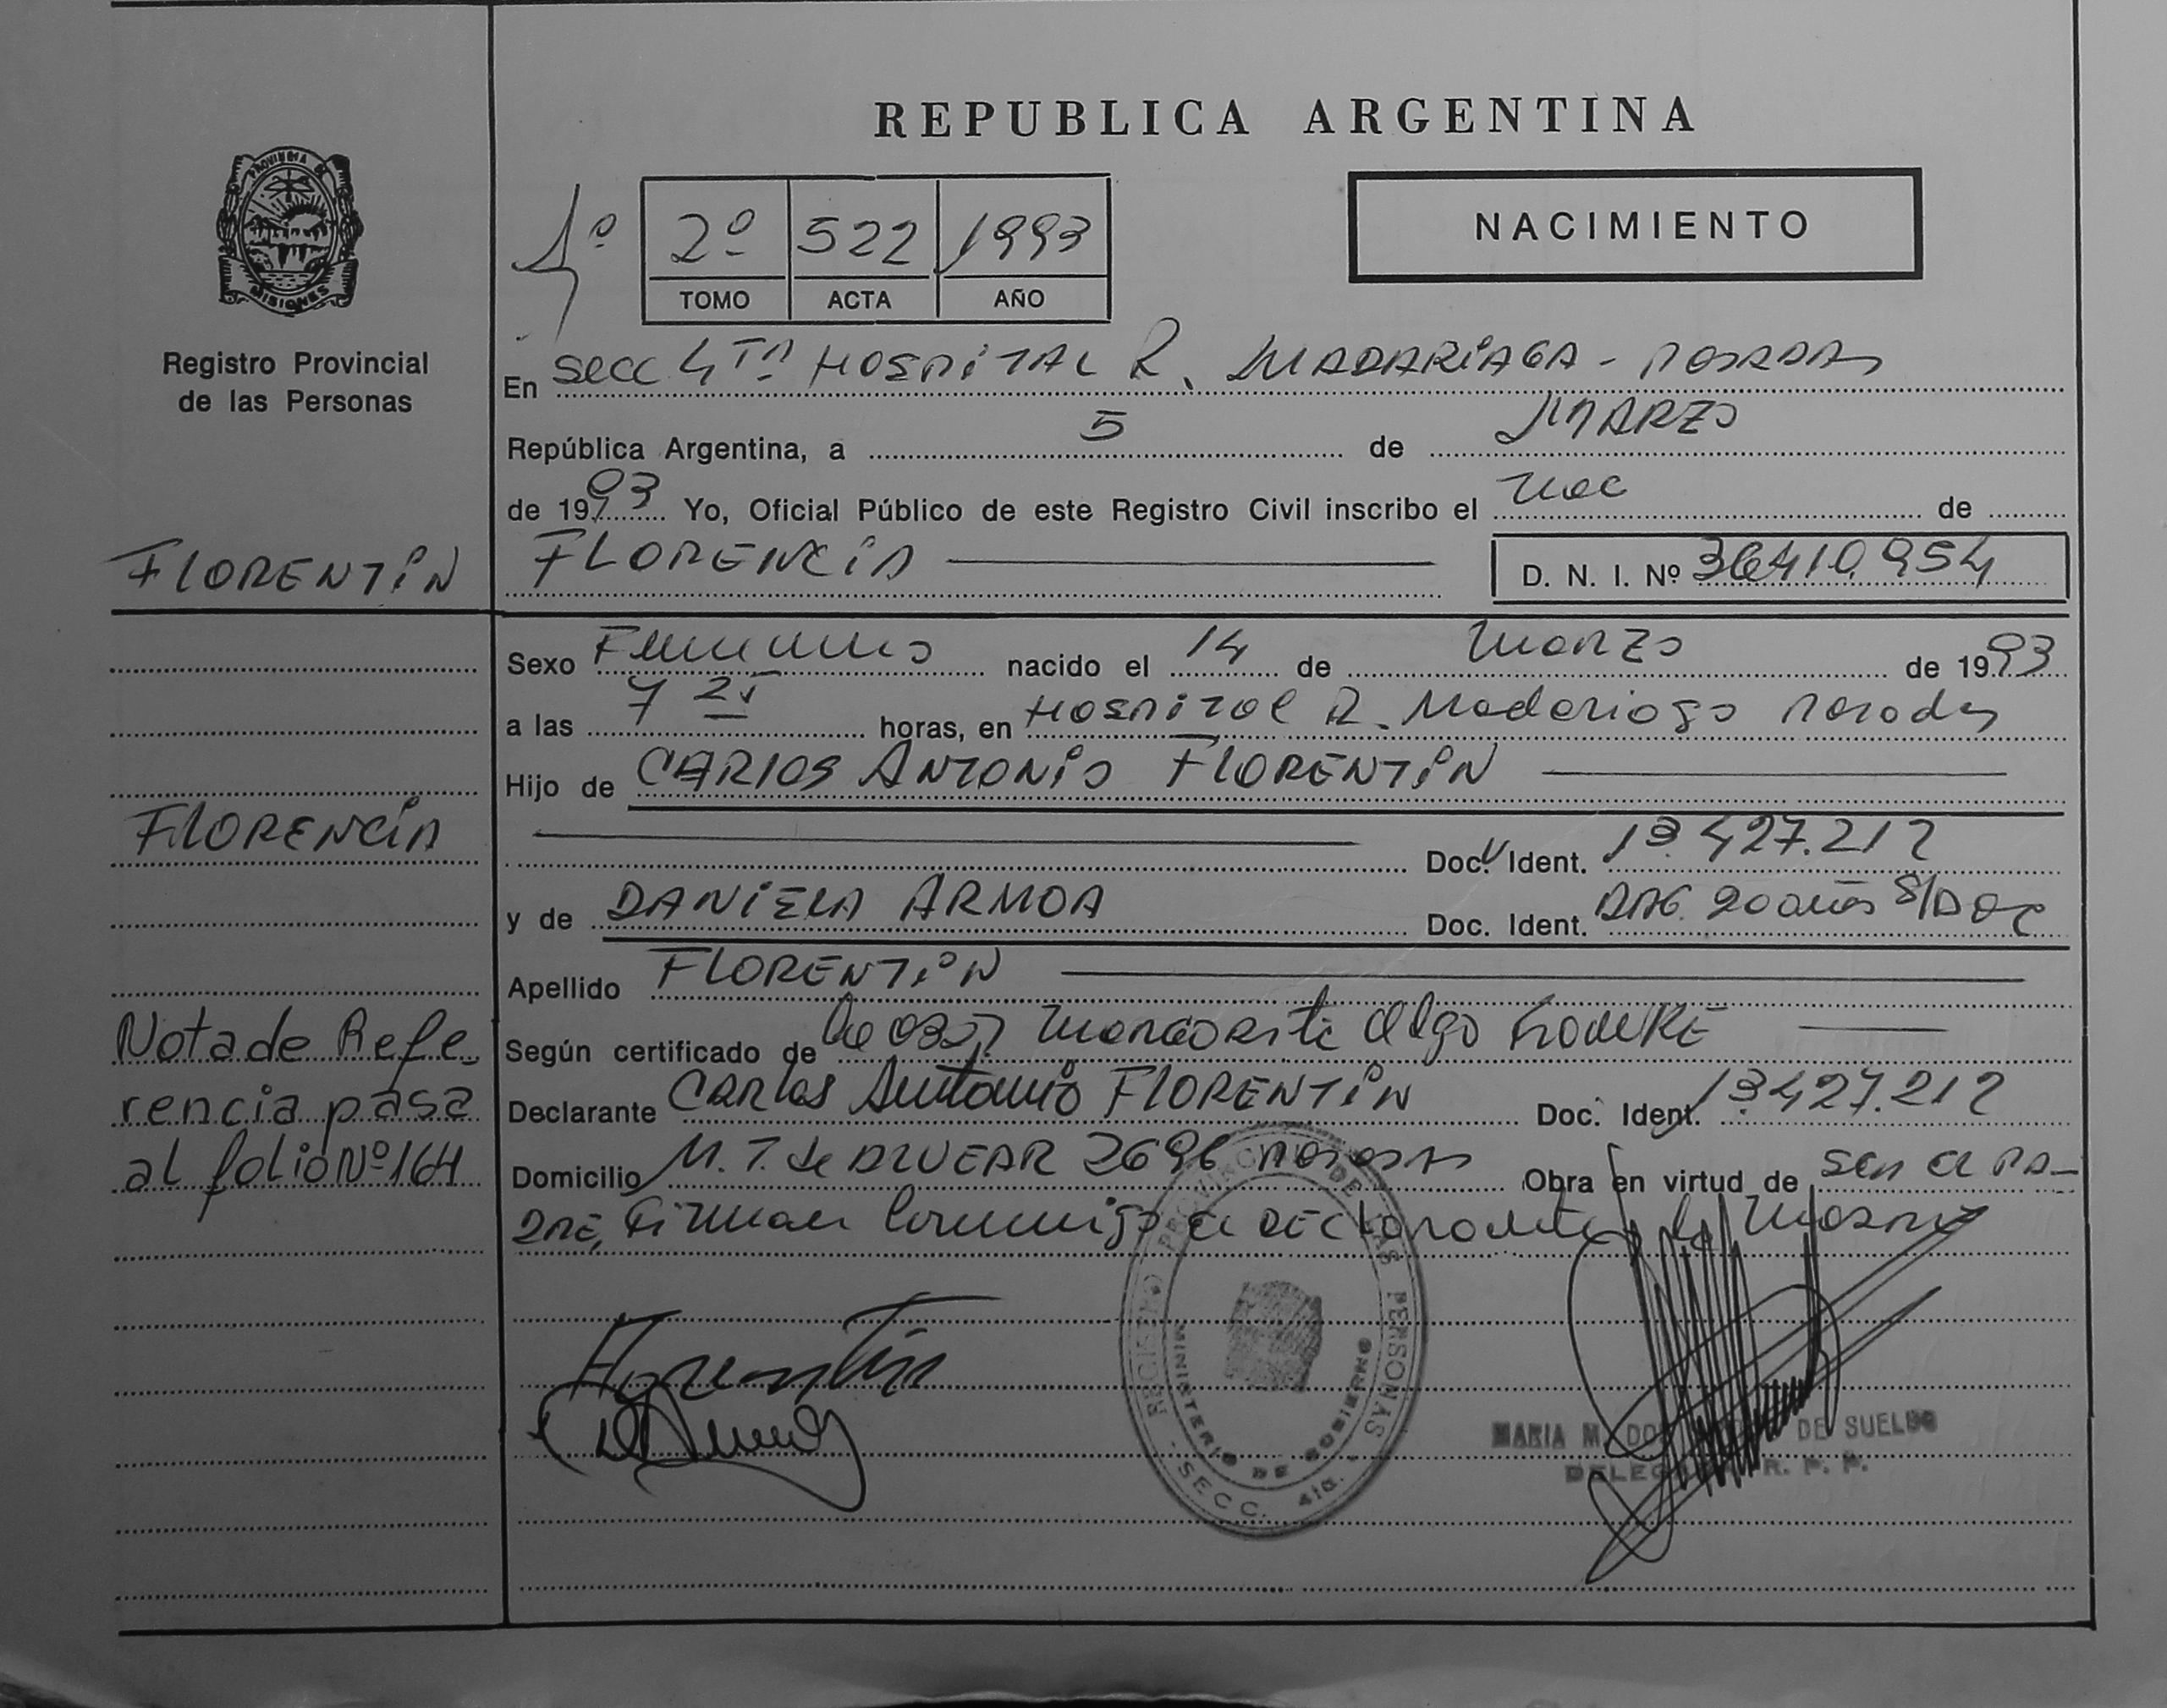 REPUBLICA ARGENTINA
PROVINCIA DE
MISIONES
Registro Provincial
de las Personas
1º
2º 522 1993
TOMO ACTA AÑO
NACIMIENTO
En secc 4ta HOSPITAL R. MADARIAGA - POSADAS
República Argentina, a 5 de MARZO
de 1993 Yo, Oficial Público de este Registro Civil inscribo el nac de
FLORENTIN
FLORENCIA
D. N. I. Nº 36410.954
Sexo Femenino nacido el 14 de Marzo de 1993
a las 7 25 horas, en Hospital R. Madariaga Posadas
Hijo de CARLOS ANTONIO FLORENTIN
FLORENCIA
Doc. Ident. 13.427.212
y de DANIELA ARMOA Doc. Ident. 20 años S/Doc
Apellido FLORENTIN
Según certificado de Margarita Olga
Declarante CARLOS Antonio FLORENTIN Doc. Ident. 13.427.212
Domicilio M. T. de ALVEAR 2696 POSADAS Obra en virtud de ser el PA-
DRE, Firman conmigo el DEClarante y la Madre
Nota de Refe
rencia pasa
al folio Nº 164
Florentin
REGISTRO PROVINCIAL DE LAS PERSONAS
MINISTERIO DE GOBIERNO
SECC. 4ta.
MARIA M. DE SUELDO
R. P. P.